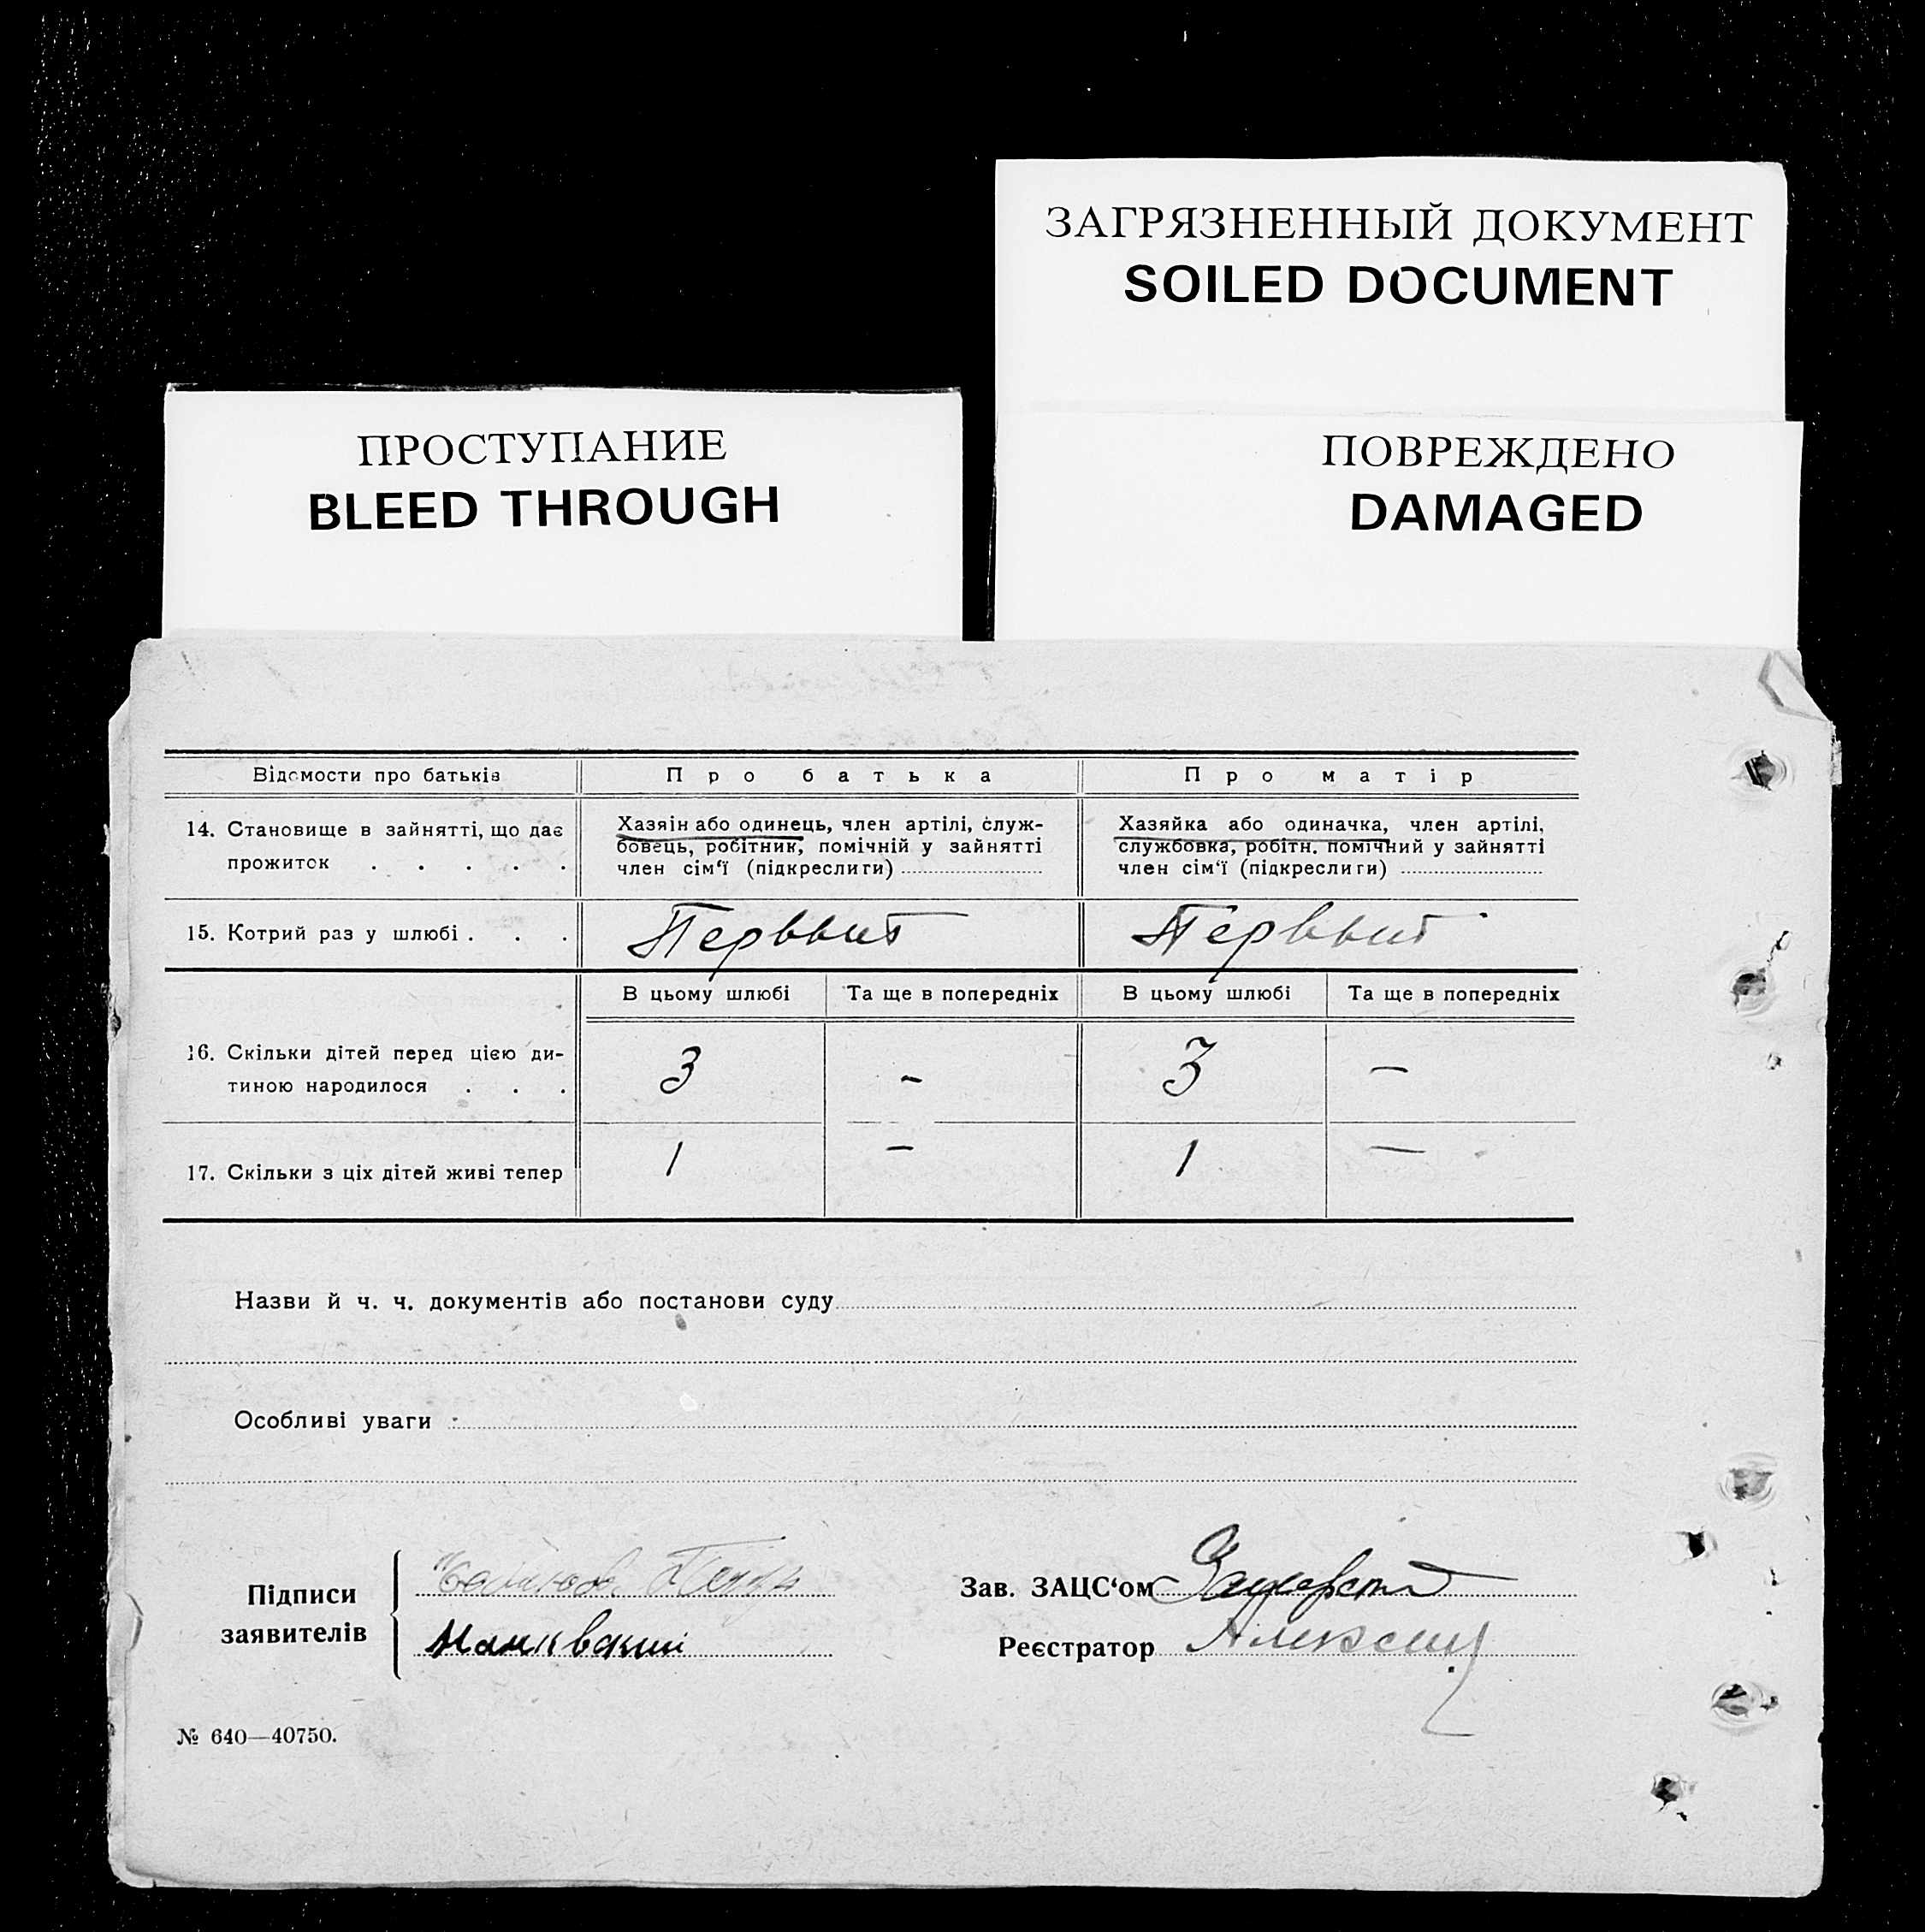 ЗАГРЯЗНЕННЫЙ ДОКУМЕНТ
SOILED DOCUMENT
ПРОСТУПАНИЕ
BLEED THROUGH
ПОВРЕЖДЕНО
DAMAGED
Відомости про батьків
Про батька
Про матір
14. Становище в зайнятті, що дає
прожиток . . . . .
Хазяін або одинець, член артілі, служ-
бовець, робітник, помічній у зайнятті
член сім‘ї (підкреслиги)
Хазяйка або одиначка, член артілі,
службовка, робітн. помічний у зайнятті
член сім‘ї (підкреслиги)
15. Котрий раз у шлюбі . . .
Первый
Первый
В цьому шлюбі
Та ще в попередніх
В цьому шлюбі
Та ще в попередніх
16. Скільки дітей перед цією ди-
тиною народилося . . .
3
-
3
—
17. Скільки з ціх дітей живі тепер
1
—
1
—
Назви й ч. ч. документів або постанови суду
Особливі уваги
Підписи
заявителів
Зав. ЗАЦС‘ом
Реєстратор
№ 640—40750.